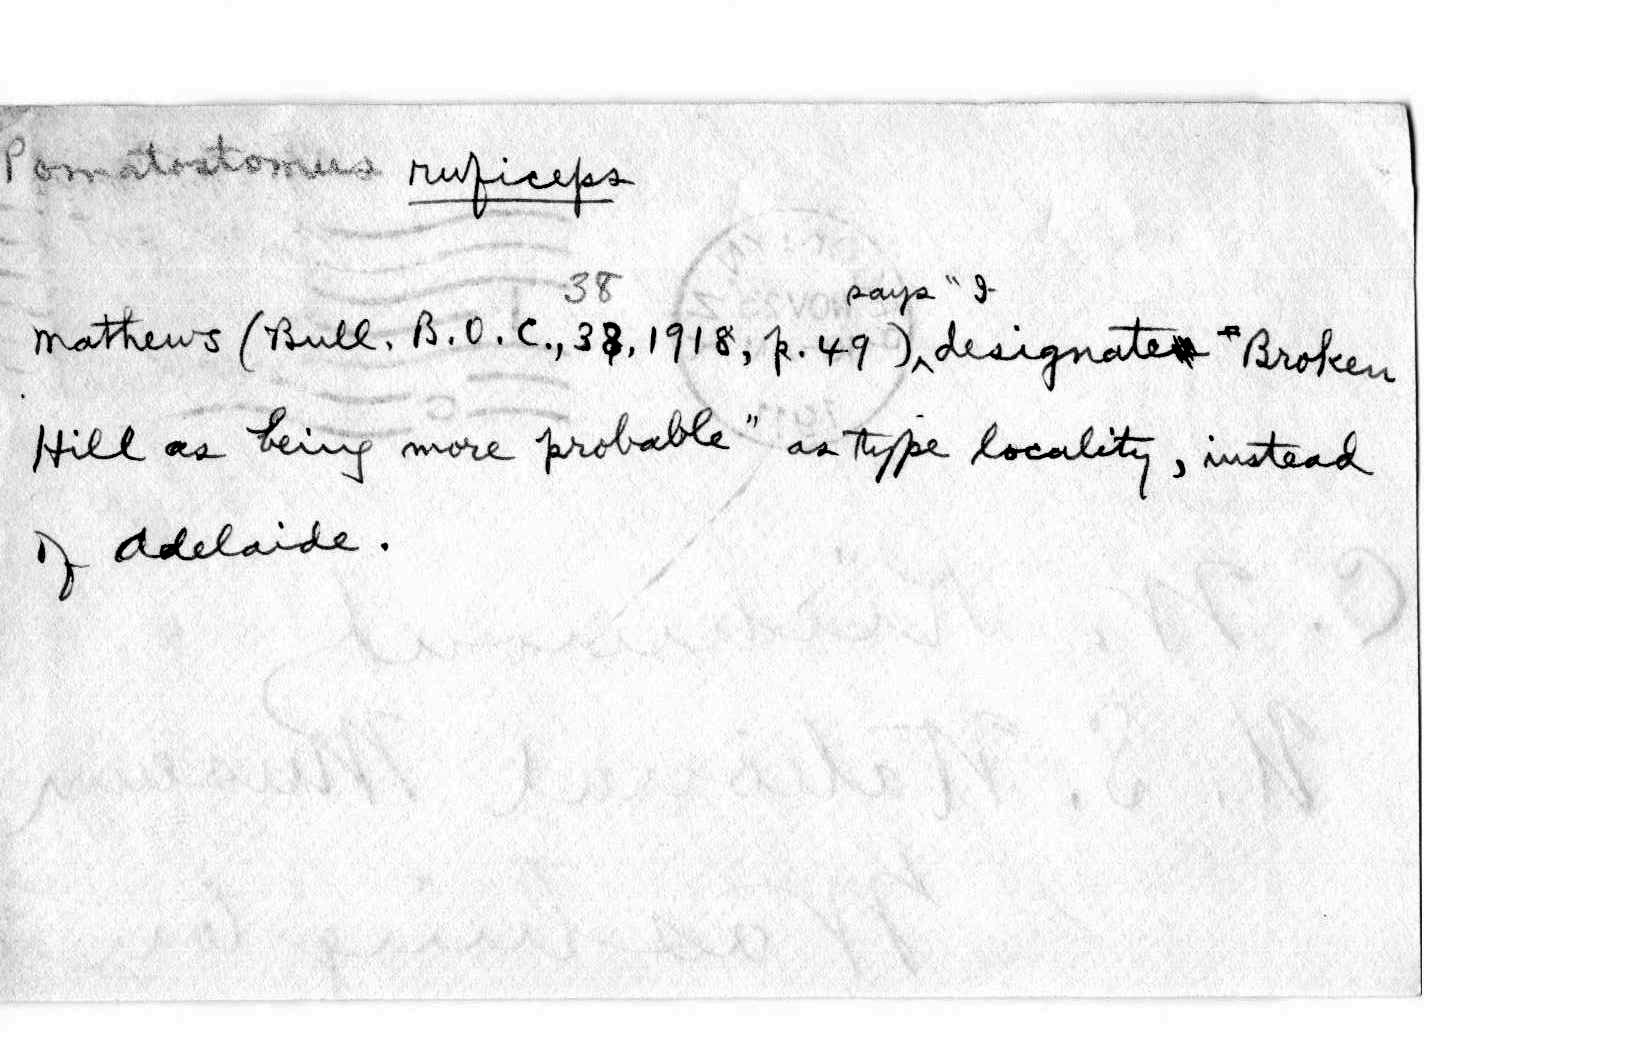 Pomatostomus ruficeps
38 says "I
Mathews (Bull. B.O.C., 38, 1918, p. 49) ‸ designate "Broken
Hill as being more probable" as type locality, instead
of Adelaide.
NOV 23
C. W. Richmond
U. S. National Museum
Washington